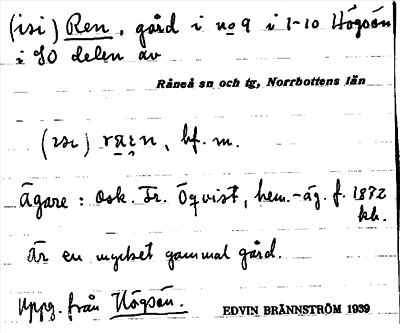 (isi) Ren, gård i no 9 i 1-10 Högsön
i SO delen av
Råneå sn och tg, Norrbottens län
bf. m.
Ägare: Osk. Fr. Öqvist, hem.-äg. f. 1872
Är en mycket gammal gård.
Uppg. från Högsön.
EDVIN BRÄNNSTRÖM 1939